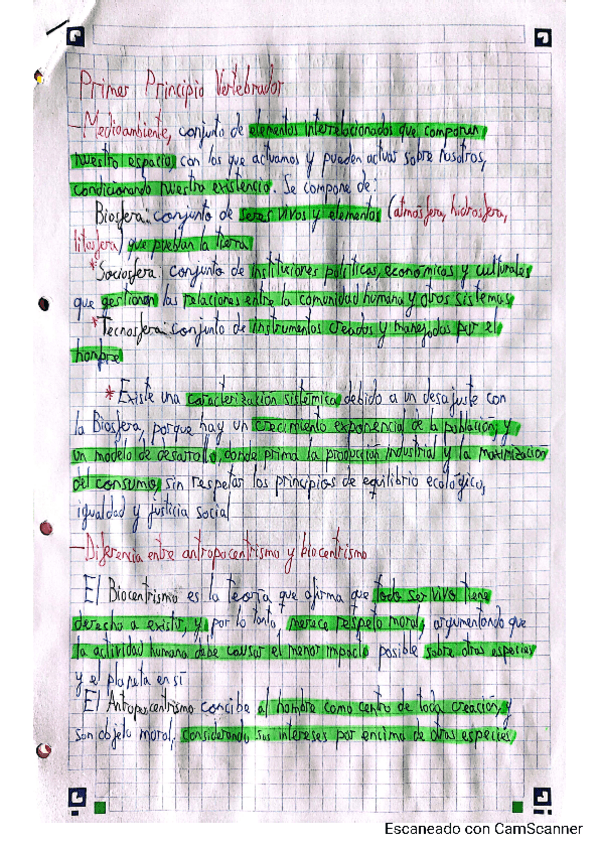 Primer Principio Vertebrador
-Medioambiente, conjunto de elementos interrelacionados que componen
nuestro espacio, con los que actuamos y pueden actuar sobre nosotros,
condicionando nuestra existencia. Se compone de:
Biosfera: conjunto de seres vivos y elementos (atmósfera, hidrosfera,
litosfera) que pueblan la tierra
*Sociosfera: conjunto de instituciones políticas, económicas y culturales
que gestionan las relaciones entre la comunidad humana y otros sistemas
*Tecnosfera: conjunto de instrumentos creados y manejados por el
hombre
*Existe una caracterización sistémica debido a un desajuste con
la Biosfera, porque hay un crecimiento exponencial de la población, y
un modelo de desarrollo, donde prima la producción industrial y la maximización
del consumo, sin respetar los principios de equilibrio ecológico,
igualdad y justicia social
-Diferencia entre antropocentrismo y biocentrismo
El Biocentrismo es la teoría que afirma que todo ser vivo tiene
derecho a existir, y, por lo tanto, merece respeto moral, argumentando que
la actividad humana debe causar el menor impacto posible sobre otras especies
y el planeta en sí
El Antropocentrismo concibe al hombre como centro de toda creación, y
son objeto moral, considerando sus intereses por encima de otras especies
Escaneado con CamScanner